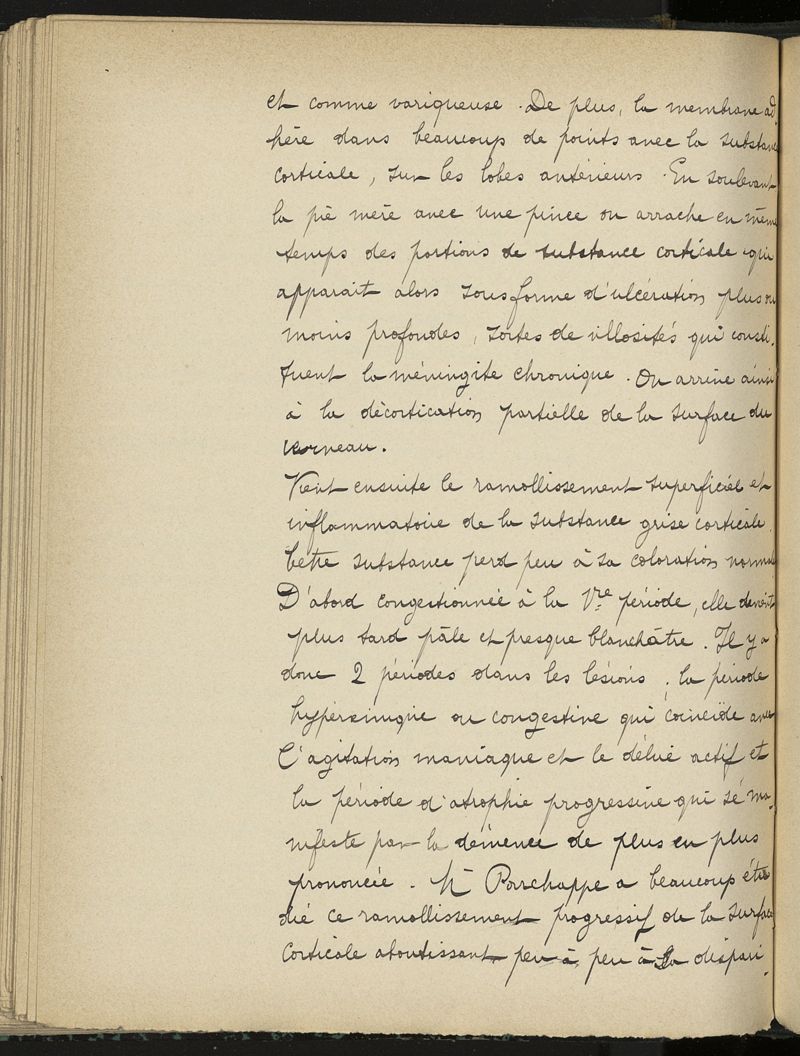 et comme variqueuse. De plus, la membrane ad
hère dans beaucoup de points avec la substance
corticale, sur les lobes antérieurs. En soulevant
la pie mère avec une pince on arrache en même
temps des portions de substance corticale qui
apparait alors sous forme d'ulcération plus ou
moins profondes, sortes de villosités qui consti-
tuent la méningite chronique. On arrive ainsi
à la décortication partielle de la surface du
cerveau.
Vient ensuite le ramollissement superficiel et
inflammatoire de la substance grise corticale.
Cette substance perd peu à sa coloration normale
D'abord congestionnée à la 1re période, elle devient
plus tard pâle et presque blanchâtre. Il y a
donc 2 périodes dans les lésions, la période
ou congestive qui coincide avec
l'agitation maniaque et le délire actif et
la période d'atrophie progressive qui se ma-
nifeste par la démence de plus en plus
prononcée. Mr Parchappe a beaucoup étu
dié ce ramollissement progressif de la surface
corticale aboutissant peu à peu à la dispari-